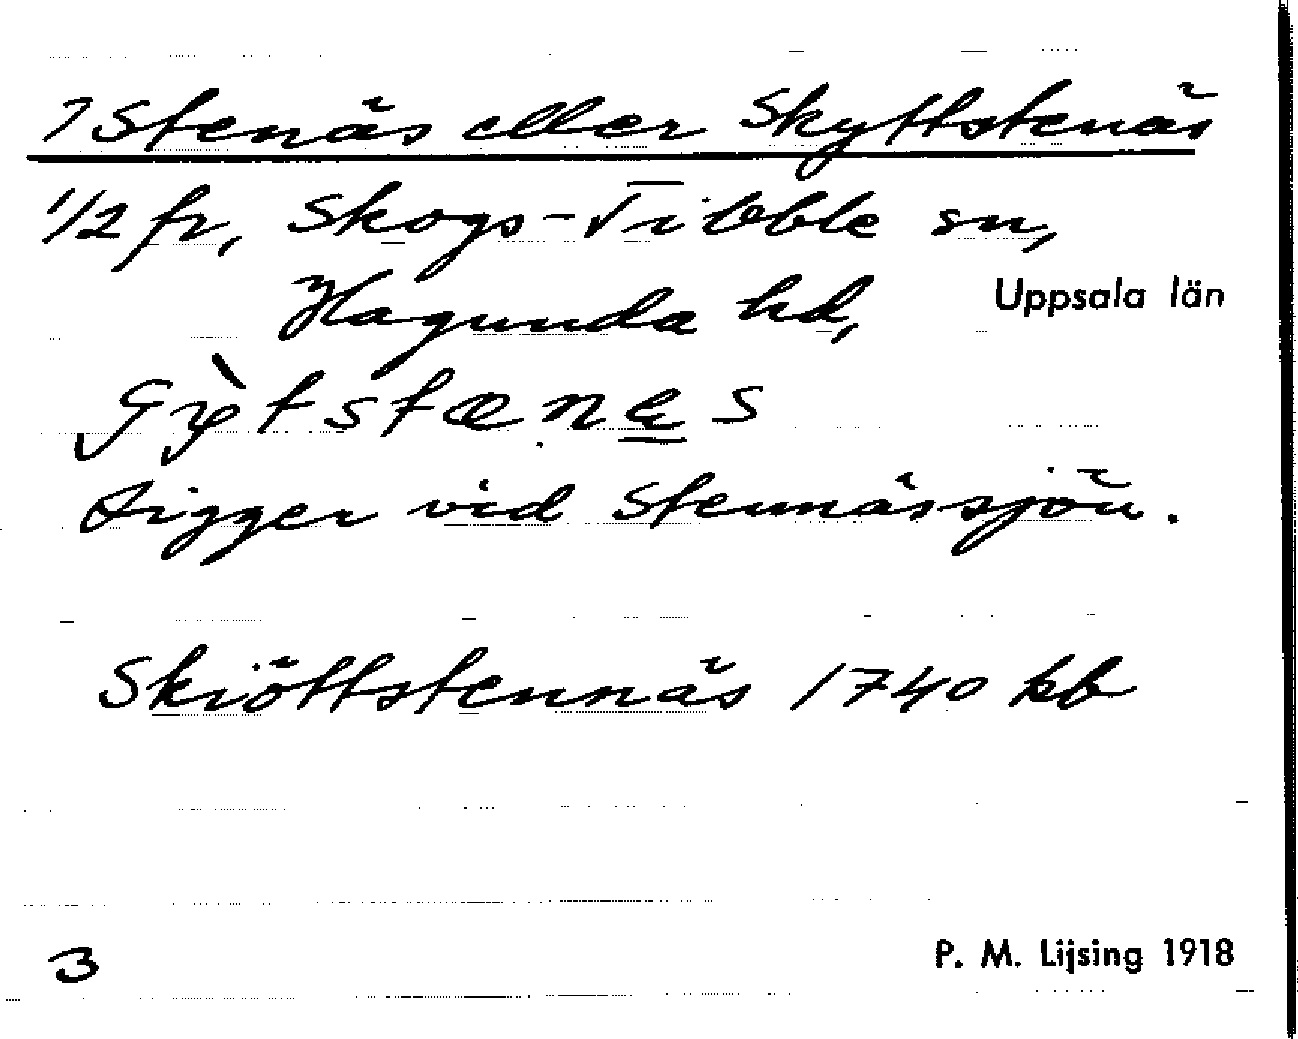 7 Stenäs eller Skyttstenäs
1/2 fr, Skogs-Tibble sn,
Hagunda hd, Uppsala län
Ligger vid Stennässjön.
Skiöttstennäs 1740 kb
3 P. M. Lijsing 1918